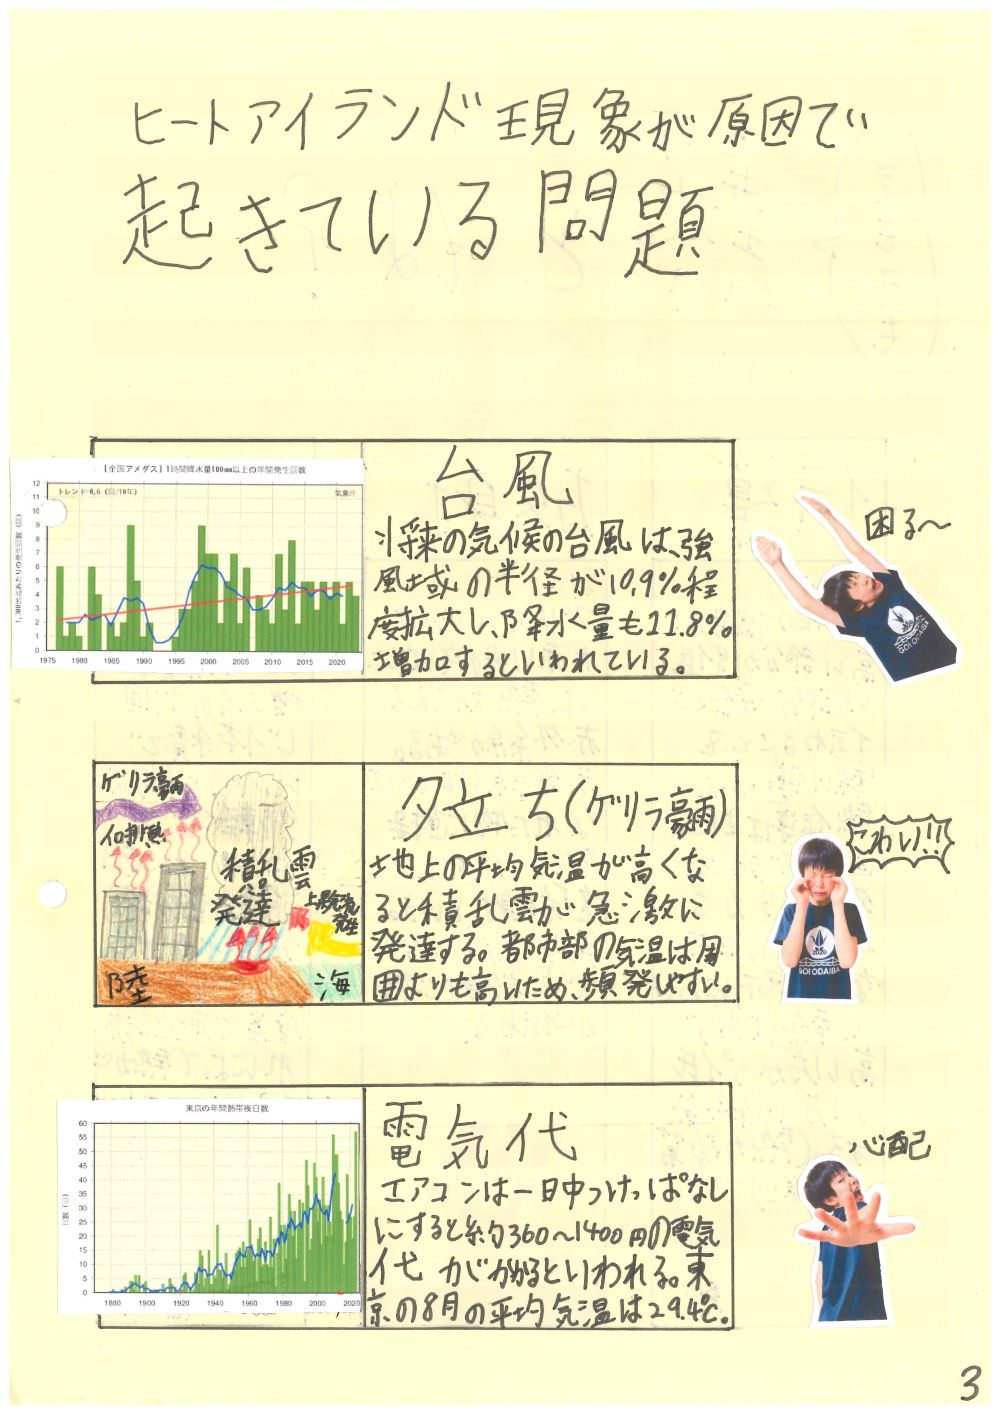 ヒートアイランド現象が原因で
起きている問題
【全国アメダス】1時間降水量100mm以上の年間発生回数
トレンド=0.6 (回/10年)
気象庁
1,300地点あたりの発生回数 (回)
12
11
10
9
8
7
6
5
4
3
2
1
0
1975 1980 1985 1990 1995 2000 2005 2010 2015 2020
台風
将来の気候の台風は、強
風域の半径が10.9%程
度拡大し、降水量も11.8%
増加するといわれている。
困る〜
ゲリラ豪雨
積乱雲
発達
上昇気流
発生
陸
海
夕立ち(ゲリラ豪雨)
地上の平均気温が高くな
ると積乱雲が急激に
発達する。都市部の気温は周
囲よりも高いため、頻発しやすい。
こわい!!
GO! ODAIBA
東京の年間熱帯夜日数
日数 (日)
60
55
50
45
40
35
30
25
20
15
10
5
0
1880 1900 1920 1940 1960 1980 2000 2020
電気代
エアコンは一日中つけっぱなし
にすると約360〜1400円の電気
代がかかるといわれる。東
京の8月の平均気温は29.4℃。
心配
3